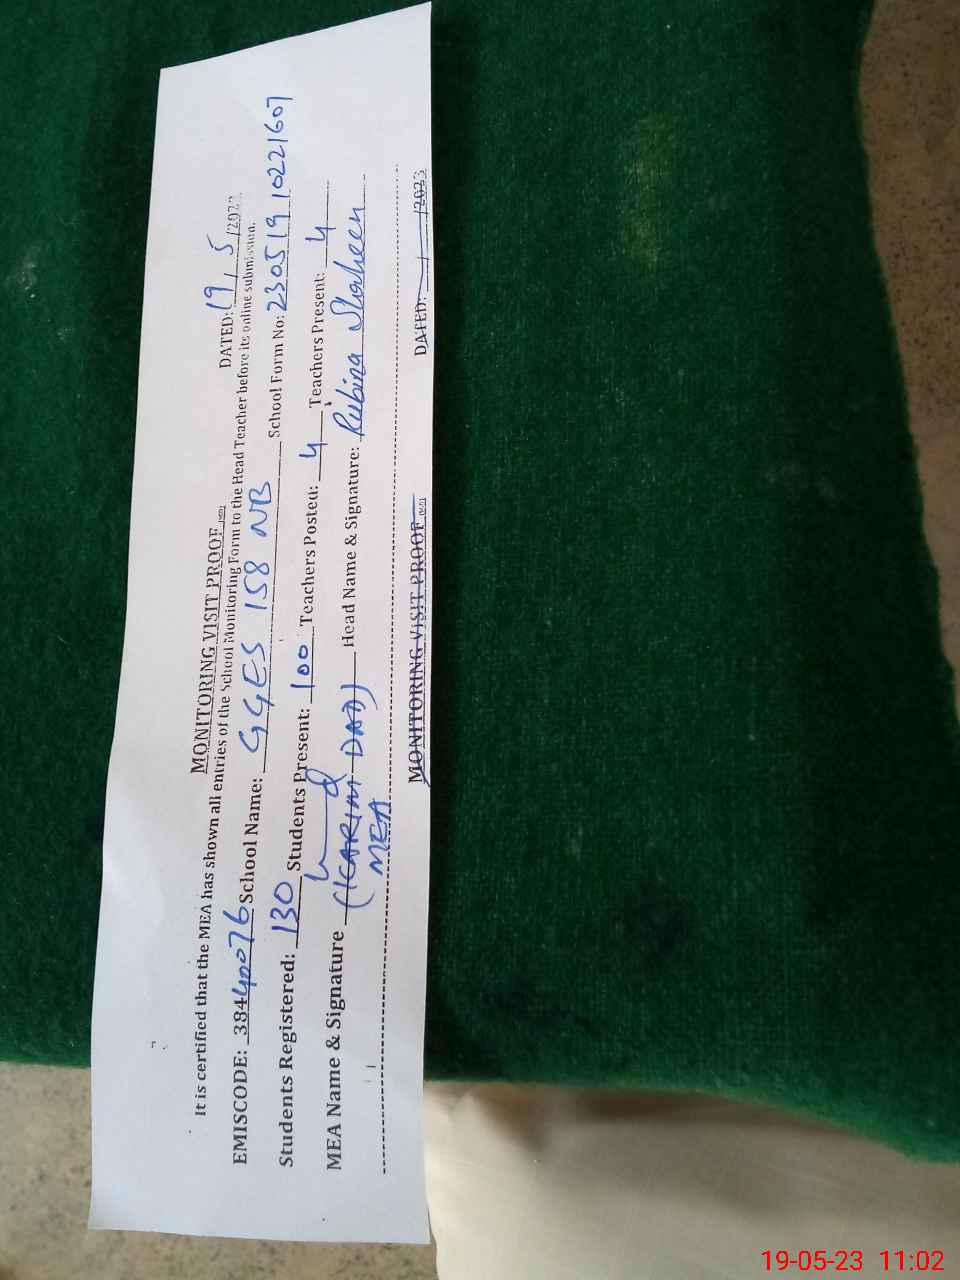 MONITORING VISIT PROOF
DATED: 19/5/2023
It is certified that the MEA has shown all entries of the School Monitoring Form to the Head Teacher before its online submission.
EMISCODE: 38440076 School Name: GGES 158 NB School Form No: 23051910221607
Students Registered: 130 Students Present: 100 Teachers Posted: 4 Teachers Present: 4
MEA Name & Signature (KARIM DAD) Head Name & Signature: Rubina Shaheen
MEA
MONITORING VISIT PROOF DATED: / /2023
19-05-23 11:02